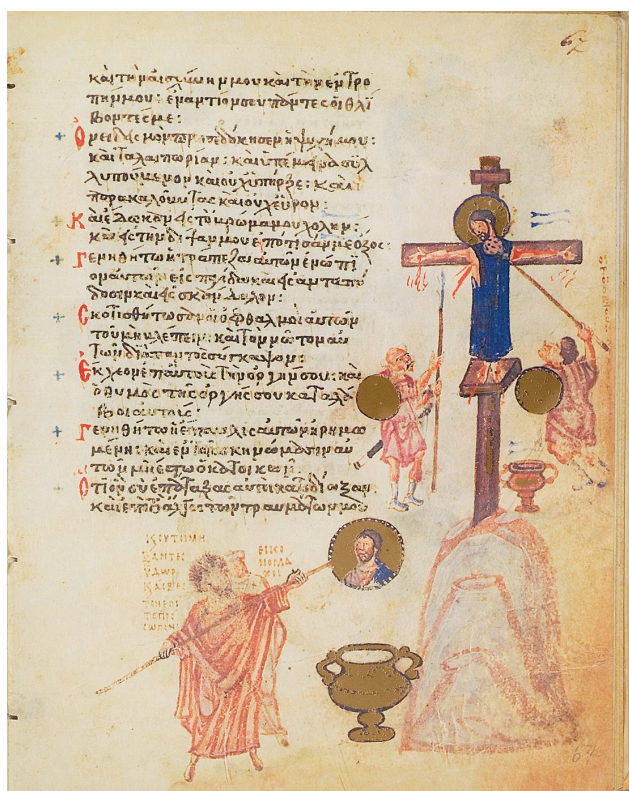 67
καὶ τὴν αἰσχύνην μου καὶ τὴν ἐντρο
πήν μου: ἐναντίον σου πάντες οἱ θλί
βοντές με:
Ὀνειδισμὸν προσεδόκησεν ἡ ψυχή μου:
καὶ ταλαιπωρίαν: καὶ ὑπέμεινα συλ
λυπούμενον καὶ οὐχ ὑπῆρξε: καὶ
παρακαλοῦντας καὶ οὐχ εὗρον:
Καὶ ἔδωκαν εἰς τὸ βρῶμά μου χολήν:
καὶ εἰς τὴν δίψαν μου ἐπότισάν με ὄξος:
Γενηθήτω ἡ τράπεζα αὐτῶν ἐνώπι
ον αὐτῶν εἰς παγίδα καὶ εἰς ἀνταπό
δοσιν καὶ εἰς σκάνδαλον:
Σκοτισθήτωσαν οἱ ὀφθαλμοὶ αὐτῶν
τοῦ μὴ βλέπειν: καὶ τὸν νῶτον αὐ
τῶν διὰ παντὸς σύγκαμψον:
Ἔκχεον ἐπ' αὐτοὺς τὴν ὀργήν σου: καὶ
ὁ θυμὸς τῆς ὀργῆς σου καταλά
βοι αὐτούς:
Γενηθήτω ἡ ἔπαυλις αὐτῶν ἠρημω
μένη: καὶ ἐν τοῖς σκηνώμασιν αὐ
τῶν μὴ ἔστω ὁ κατοικῶν:
Ὅτι ὃν σὺ ἐπάταξας αὐτοὶ κατεδίωξαν
καὶ ἐπὶ τὸ ἄλγος τῶν τραυμάτων μου
67